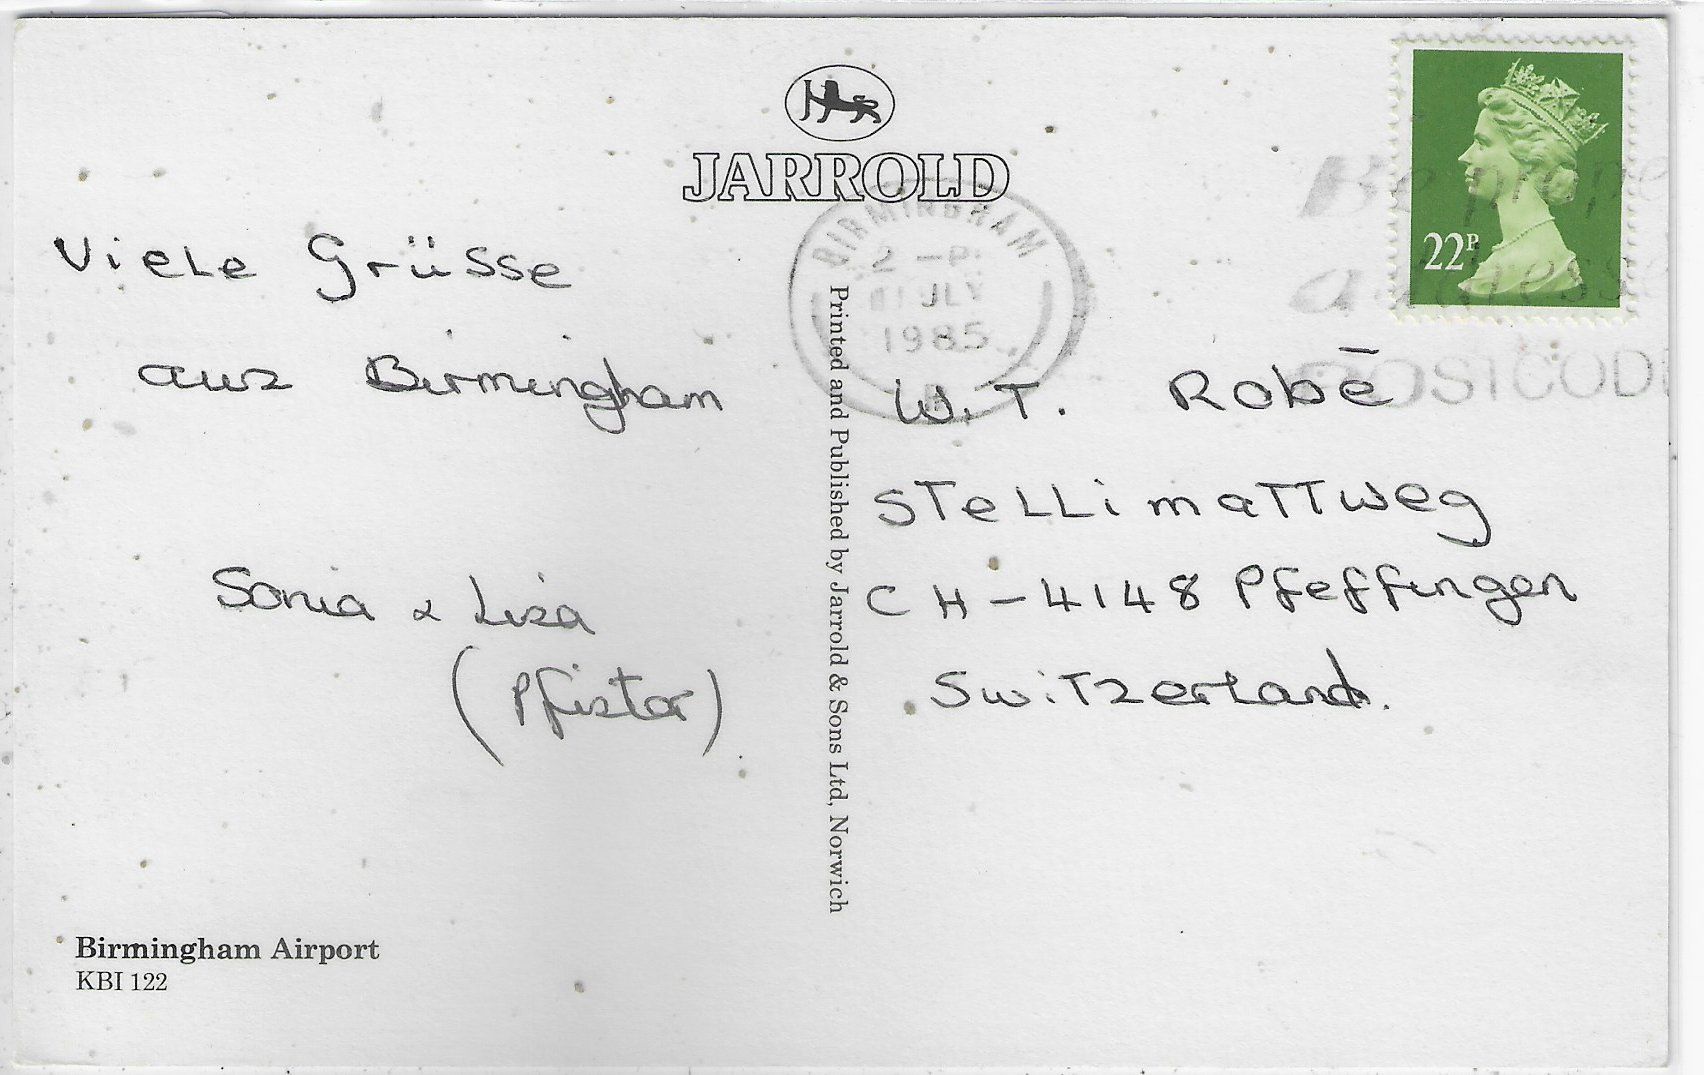 JARROLD
BIRMINGHAM
2 -P
JLY
1985
22P
POSTCODE
Viele Grüsse
aus Birmingham
Sonia & Lisa
(Pfister)
W.T. Robē
Stellimattweg
CH-4148 Pfeffingen
Switzerland.
Printed and Published by Jarrold & Sons Ltd, Norwich
Birmingham Airport
KBI 122